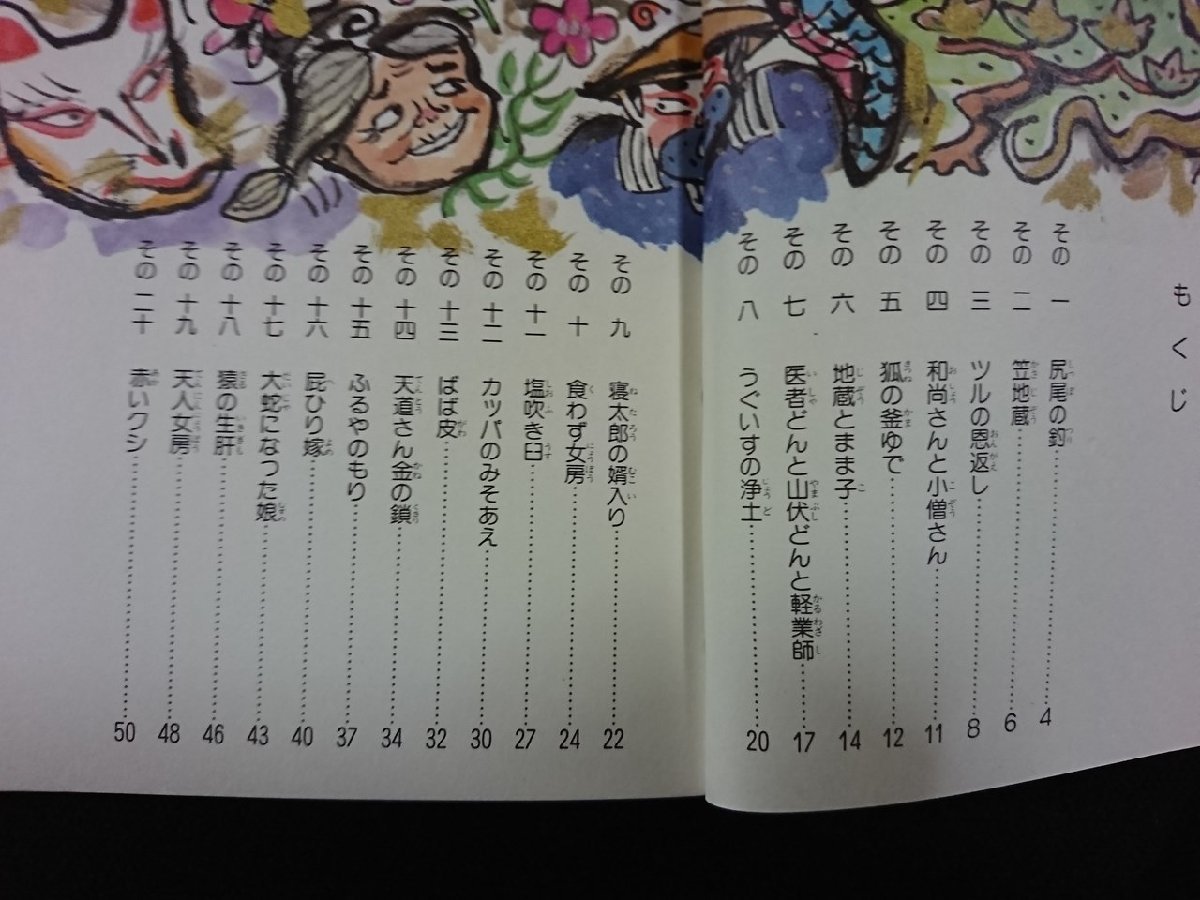 もくじ
その一 尻尾の釣 4
その二 笠地蔵 6
その三 ツルの恩返し 8
その四 和尚さんと小僧さん 11
その五 狐の釜ゆで 12
その六 地蔵とまま子 14
その七 医者どんと山伏どんと軽業師 17
その八 うぐいすの浄土 20
その九 寝太郎の婿入り 22
その十 食わず女房 24
その十一 塩吹き臼 27
その十二 カッパのみそあえ 30
その十三 ばば皮 32
その十四 天道さん金の鎖 34
その十五 ふるやのもり 37
その十六 屁ひり嫁 40
その十七 大蛇になった娘 43
その十八 猿の生肝 46
その十九 天人女房 48
その二十 赤いクシ 50